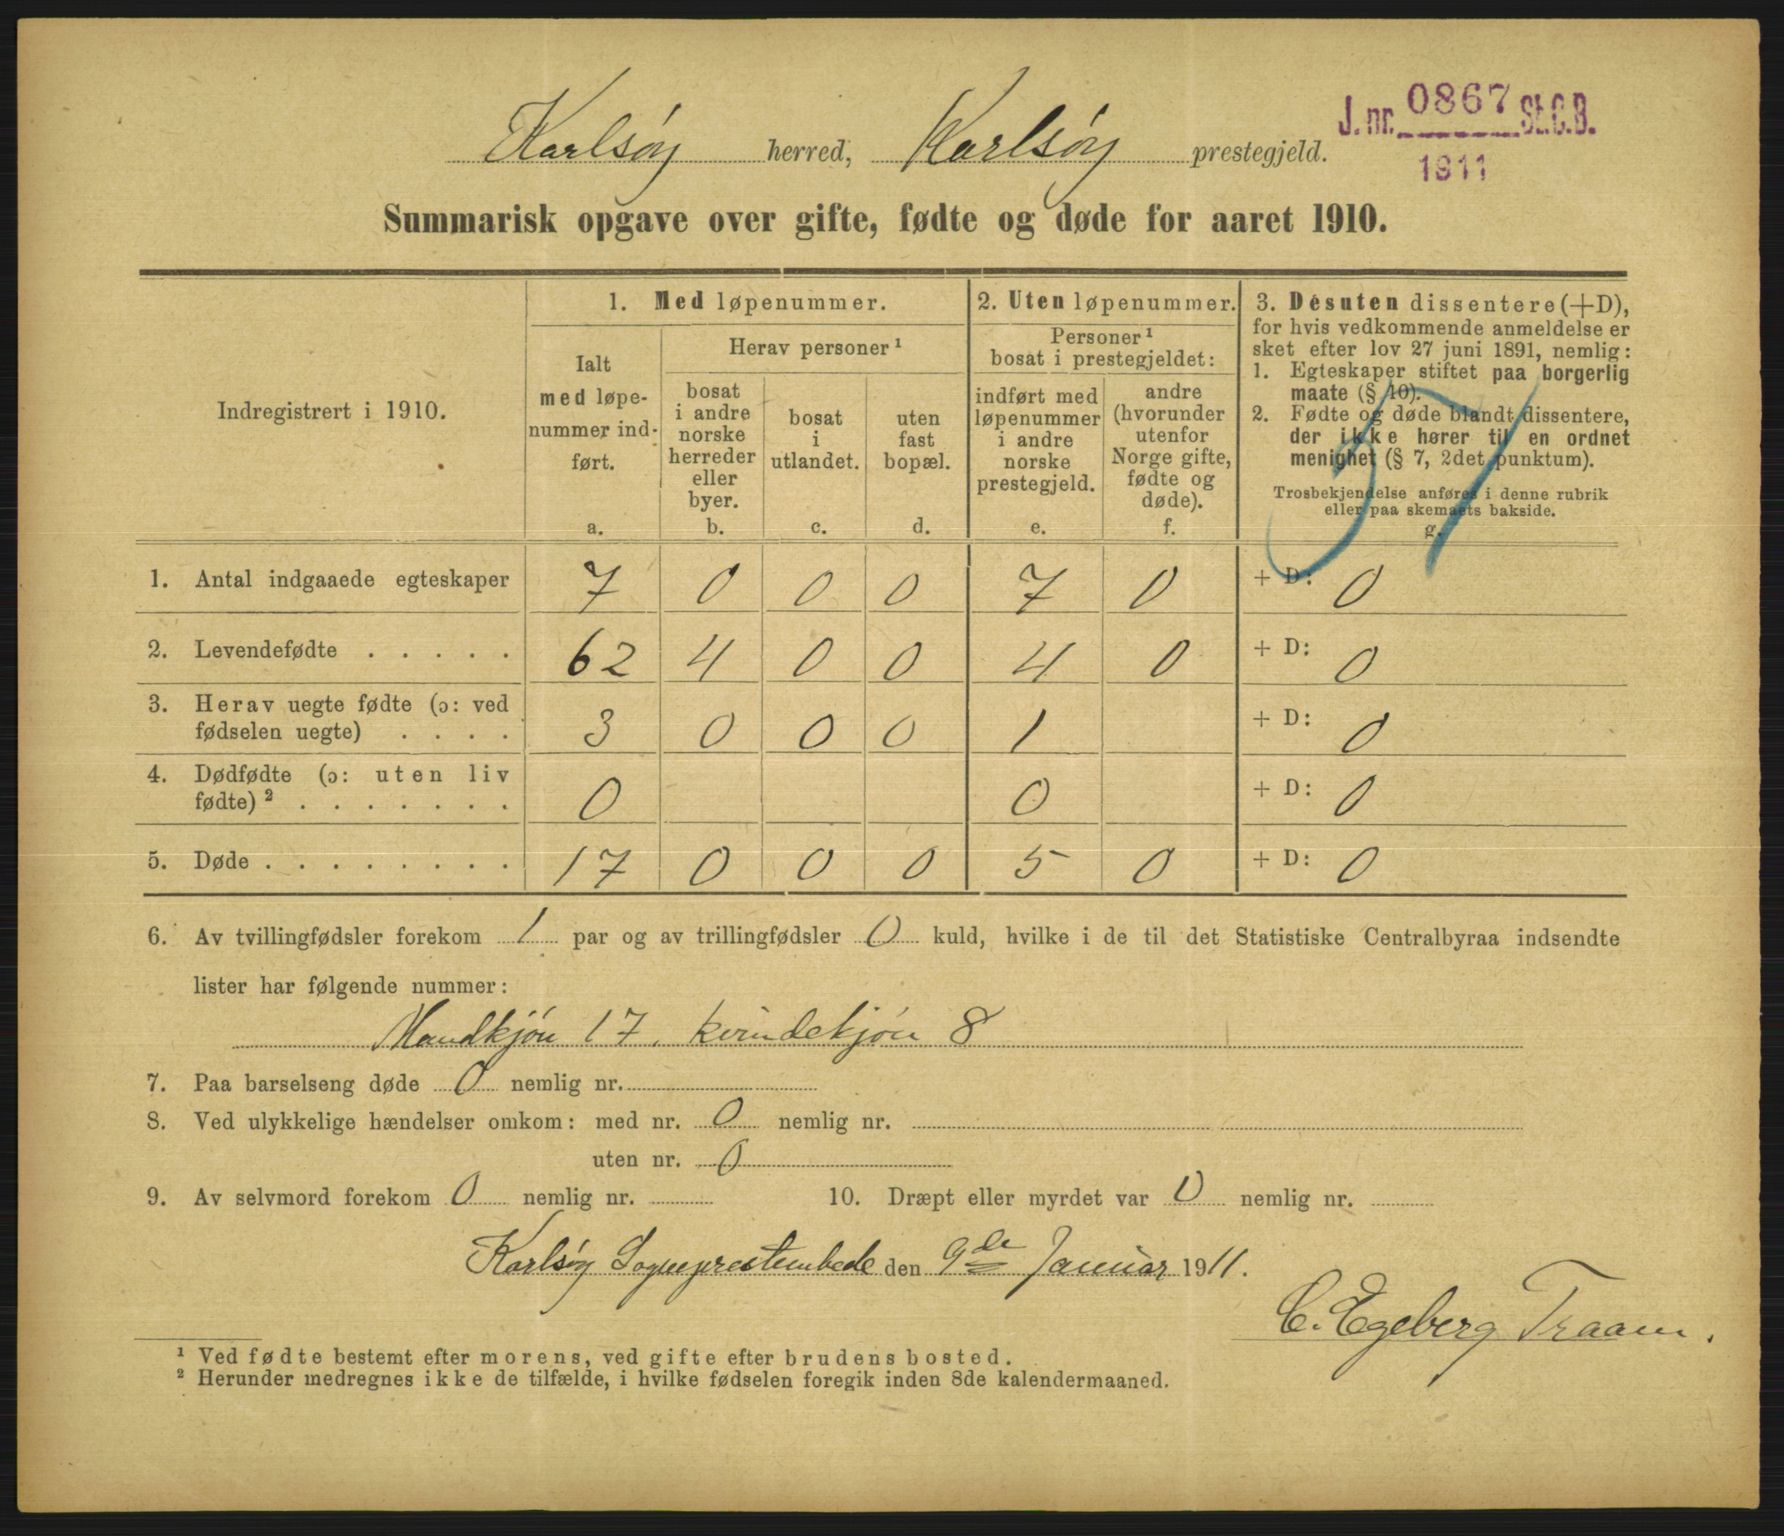 Karlsöy herred, Karlsöy prestegjeld.
J. nr. 0867 St.C.B.
1911
Summarisk opgave over gifte, fødte og døde for aaret 1910.
Indregistrert i 1910.
1. Med løpenummer.
Ialt
med løpe-
nummer ind-
ført.
a.
Herav personer ¹
bosat
i andre
norske
herreder
eller
byer.
b.
bosat
i
utlandet.
c.
uten
fast
bopæl.
d.
2. Uten løpenummer.
Personer ¹
bosat i prestegjeldet:
indført med
løpenummer
i andre
norske
prestegjeld.
e.
andre
(hvorunder
utenfor
Norge gifte,
fødte og
døde).
f.
3. Desuten dissentere (+D),
for hvis vedkommende anmeldelse er
sket efter lov 27 juni 1891, nemlig:
1. Egteskaper stiftet paa borgerlig
maate (§ 10).
2. Fødte og døde blandt dissentere,
der ikke hører til en ordnet
menighet (§ 7, 2det punktum).
Trosbekjendelse anføres i denne rubrik
eller paa skemaets bakside.
g.
37
1. Antal indgaaede egteskaper 7 0 0 0 7 0 + D: 0
2. Levendefødte . . . . . 62 4 0 0 4 0 + D: 0
3. Herav uegte fødte (ɔ: ved
fødselen uegte) . . . . 3 0 0 0 1 + D: 0
4. Dødfødte (ɔ: uten liv
fødte) ² . . . . . . . 0 0 + D: 0
5. Døde . . . . . . . . 17 0 0 0 5 0 + D: 0
6. Av tvillingfødsler forekom 1 par og av trillingfødsler 0 kuld, hvilke i de til det Statistiske Centralbyraa indsendte
lister har følgende nummer:
Mandkjön 17. kvindekjön 8
7. Paa barselseng døde 0 nemlig nr.
8. Ved ulykkelige hændelser omkom: med nr. 0 nemlig nr.
uten nr. 0
9. Av selvmord forekom 0 nemlig nr. 10. Dræpt eller myrdet var 0 nemlig nr.
Karlsöy Sogneprestembede den 9de Januar 1911.
C. Egeberg Traam.
¹ Ved fødte bestemt efter morens, ved gifte efter brudens bosted.
² Herunder medregnes ikke de tilfælde, i hvilke fødselen foregik inden 8de kalendermaaned.